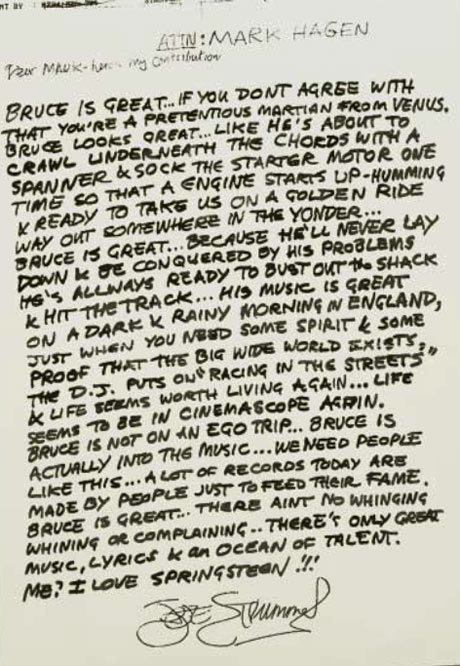 ATTN: MARK HAGEN
Dear MARK - here's my contribution
BRUCE IS GREAT... IF YOU DONT AGREE WITH
THAT YOU'RE A PRETENTIOUS MARTIAN FROM VENUS.
BRUCE LOOKS GREAT... LIKE HE'S ABOUT TO
CRAWL UNDERNEATH THE CHORDS WITH A
SPANNER & SOCK THE STARTER MOTOR ONE
TIME SO THAT A ENGINE STARTS UP-HUMMING
& READY TO TAKE US ON A GOLDEN RIDE
WAY OUT SOMEWHERE IN THE YONDER...
BRUCE IS GREAT... BECAUSE HE'LL NEVER LAY
DOWN & BE CONQUERED BY HIS PROBLEMS
HE'S ALLWAYS READY TO BUST OUT the SHACK
& HIT THE TRACK... HIS MUSIC IS GREAT
ON A DARK & RAINY MORNING IN ENGLAND,
JUST WHEN YOU NEED SOME SPIRIT & SOME
PROOF THAT THE BIG WIDE WORLD EXISTS,
THE D.J. PUTS ON "RACING IN THE STREETS"
& LIFE SEEMS WORTH LIVING AGAIN... LIFE
SEEMS TO BE IN CINEMASCOPE AGAIN.
BRUCE IS NOT ON AN EGO TRIP... BRUCE IS
ACTUALLY INTO THE MUSIC... WE NEED PEOPLE
LIKE THIS... A LOT OF RECORDS TODAY ARE
MADE BY PEOPLE JUST TO FEED THEIR FAME.
BRUCE IS GREAT... THERE AINT NO WHINGING
WHINING OR COMPLAINING.. THERE'S ONLY GREAT
MUSIC, LYRICS & an OCEAN OF TALENT.
ME? I LOVE SPRINGSTEEN!!!
JOE Strummer